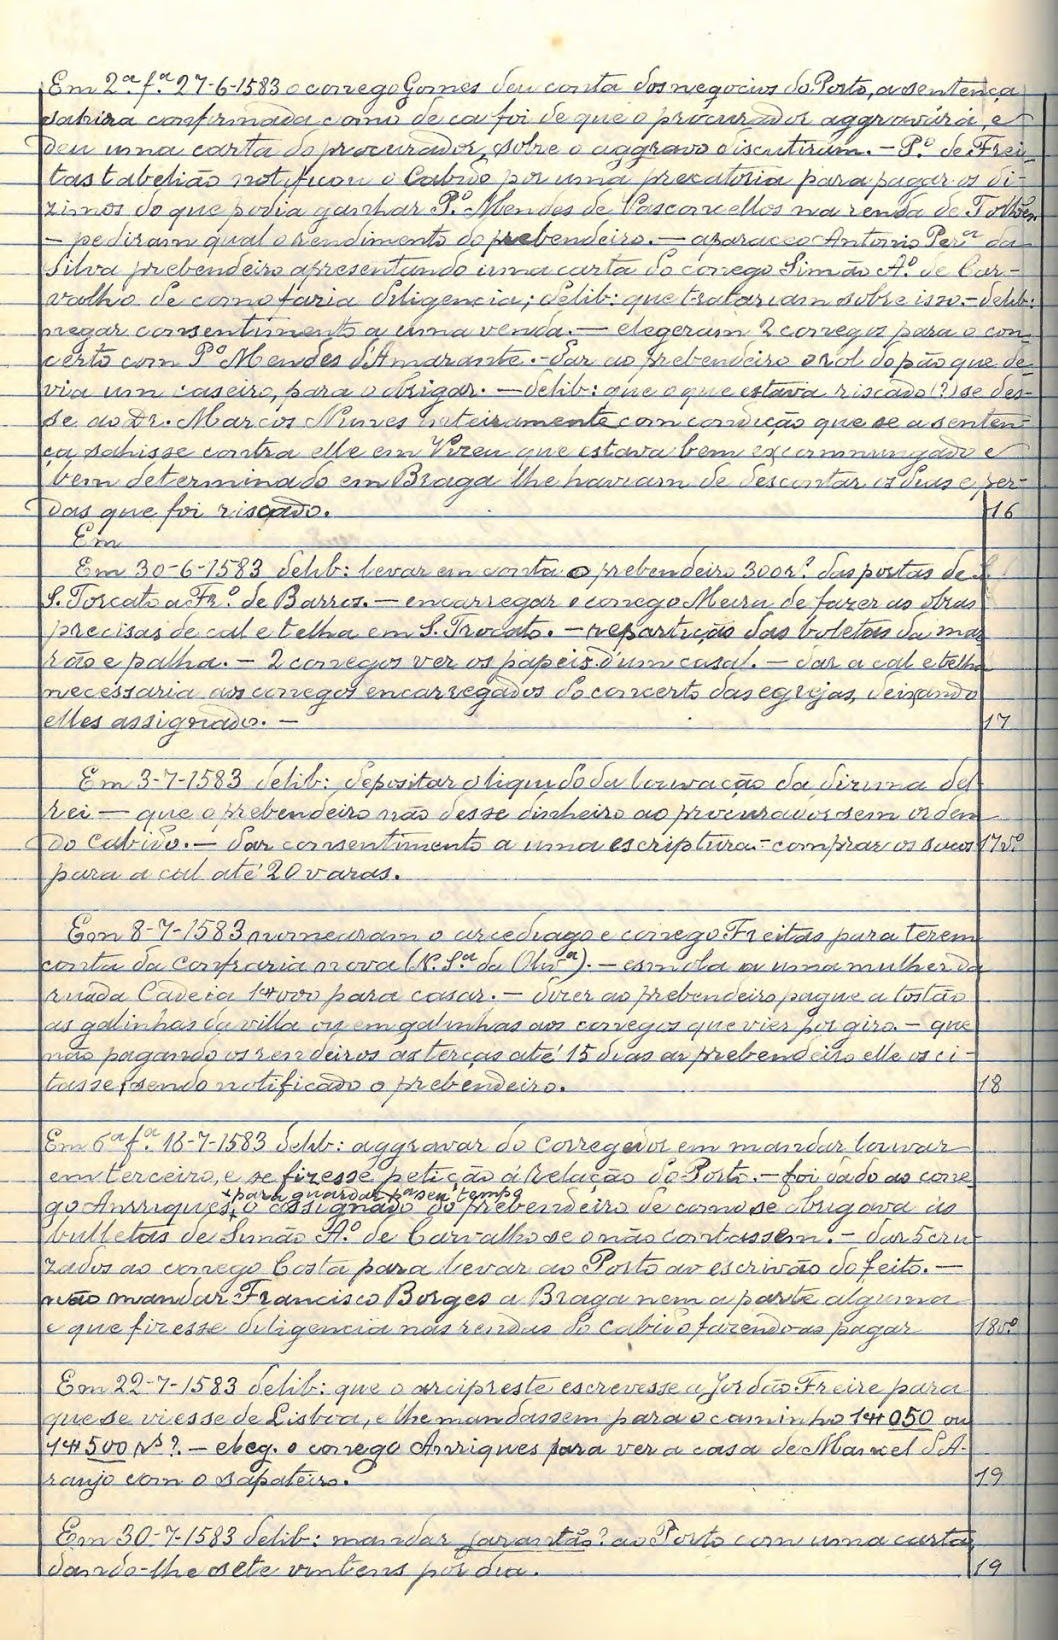 Em 2ª fª 27-6-1583 o conego Gomes deu conta dos negocios do Porto, a sentença
sahira confirmada como de ca foi de que o procurador aggravárá, e
deu uma carta do procurador, sobre o aggravo discutiram. - P.º de Frei-
tas tabelião notificou o Cabido por uma precatoria para pagar os di-
zimos do que podia ganhar P.º Mendes de Vasconcellos na renda de
- pediram qual o rendimento do prebendeiro. - aparaceo Antonio Per.ª da
Silva prebendeiro apresentando uma carta do conego Simão A.º de Car-
valho de como faria diligencia; delib: que tratariam sobre isso. - delib:
negar consentimento a uma venda. - elegeram 2 conegos para o con-
certo com P.º Mendes d'Amarante. - dar ao prebendeiro o rol do pão que de-
via um caseiro, para o obrigar. - delib: que o que estava riscado (?) se des-
se ao Dr. Marcos Nunes inteiramente com condição que se a senten-
ça sahisse contra elle em que estava bem excommungado e
bem determinado em Braga lhe haviam de descontar os dias e per-
das que foi riscado. 16
Em
Em 30-6-1583 delib: levar em conta o prebendeiro 300 r? das portas de
S. Torcato a Fr.º de Barros. - encarregar o conego Meira de fazer as obras
precisas de cal e telha em S. Trocato. - repartição das boletas da ma
rão e palha. - 2 conegos ver os papeis d'um casal. - dar a cal e telha
necessaria aos conegos encarregados do concerto das egrejas, deixando
elles assignado. - 17
Em 3-7-1583 delib: depositar o liquido da louvação da dizima del
rei - que o prebendeiro não desse dinheiro ao procurador sem ordem
do Cabido. - dar consentimento a uma escriptura. - comprar os sacos 17vº
para a cal até 20 varas.
Em 8-7-1583 nomearam o arcediago e conego Freitas para terem
conta da Confraria nova (N. S.ª da Olivª). - esmola a uma mulher da
rua da Cadeia 1#000 para casar. - dizer ao prebendeiro pague a tostão
as galinhas da villa ou em galinhas aos conegos que vier por giro. - que
não pagando os rendeiros as terças até 15 dias ao prebendeiro elle os ci-
tasse, sendo notificado o prebendeiro. 18
Em 6ª fª 16-7-1583 delib: aggravar do Corregedor em mandar louvar
em terceiro, e se fizesse petição á Relação do Porto. - foi dado ao cone-
+ para guardar pª seu tempo
go Anrriques, + o assignado do prebendeiro de como se obrigava ás
bulletas de Simão A.º de Carvalho se o não contassem. - dar 5 cru-
zados ao conego Costa para levar ao Porto ao escrivão do feito. -
não mandar Francisco Borges a Braga nem a parte alguma
e que fizesse diligencia nas rendas do Cabido fazendo-as pagar 18vº
Em 22-7-1583 delib: que o arcipreste escrevesse a Jordão Freire para
que se viesse de Lisboa, e lhe mandassem para o caminho 1#050 ou
1#500 rs?. - eleg. o conego Anriques para ver a casa de Manoel d'A-
raujo com o sapateiro. 19
Em 30-7-1583 delib: mandar ao Porto com uma carta
dando-lhe sete vintens por dia. 19